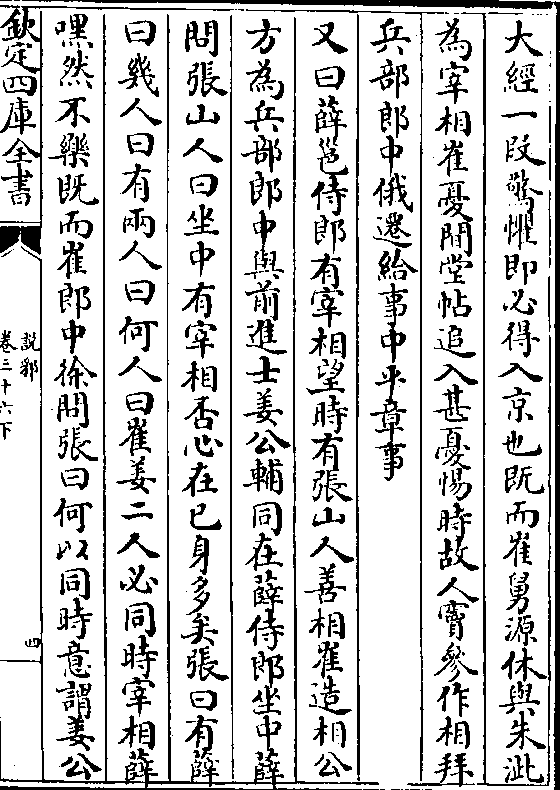 大經一段驚懼即必得入京也既而崔舅源休與朱泚
為宰相崔憂聞堂帖追入甚憂惕時故人竇參作相拜
兵部郎中俄遷給事中平章事
又曰薛邕侍郎有宰相望時有張山人善相崔造相公
方為兵部郎中與前進士姜公輔同在薛侍郎坐中薛
問張山人曰坐中有宰相否心在已身多矣張曰有薛
曰幾人曰有兩人曰何人曰崔姜二人必同時宰相薛
嘿然不樂既而崔郎中徐問張曰何以同時意謂姜公
欽定四庫全書
説郛
卷三十六下
四